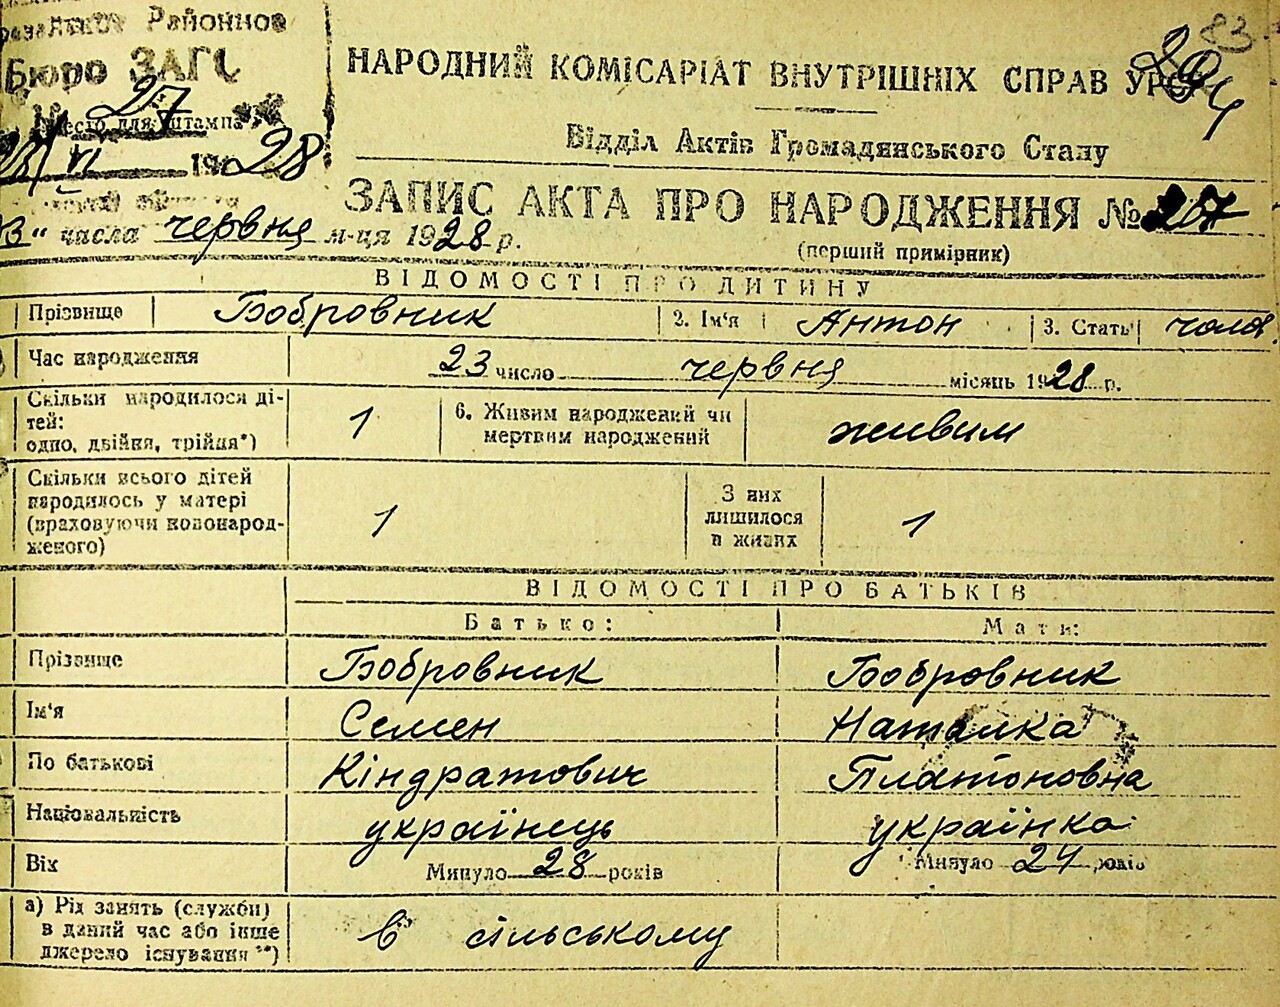 Районное
Бюро ЗАГС
83
294
27
Место для штампа
VI 1928
НАРОДНИЙ КОМІСАРІАТ ВНУТРІШНІХ СПРАВ УРСР
Відділ Актів Громадянського Стану
ЗАПИС АКТА ПРО НАРОДЖЕННЯ № 267
числа червня м-ця 1928 р.
(перший примірник)
ВІДОМОСТІ ПРО ДИТИНУ
Прізвище Бобровник 2. Ім'я Антон 3. Стать чолов.
Час народження 23 число червня місяць 1928 р.
Скільки народилося ді-
тей:
одно, двійня, трійня*) 1 6. Живим народжений чи
мертвим народжений живим
Скільки всього дітей
народилось у матері
(враховуючи новонарод-
женого) 1 З них
лишилося
в живих 1
ВІДОМОСТІ ПРО БАТЬКІВ
Батько: Мати:
Прізвище Бобровник Бобровник
Ім'я Семен Наталка
По батькові Кіндратович Платоновна
Національність українець українка
Вік Минуло 28 років Минуло 24 років
а) Рід занять (служби)
в даний час або інше
джерело існування**) в сільському